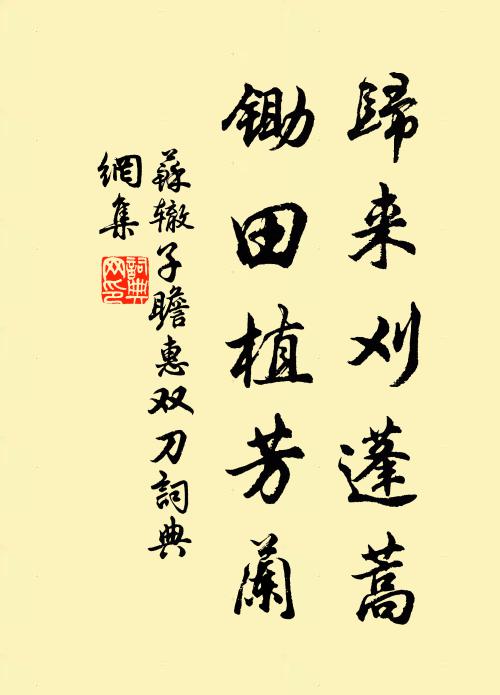 歸来刈蓬蒿
鋤田植芳蘭
蘇辙子瞻惠双刀詞典
網集
詞典網印